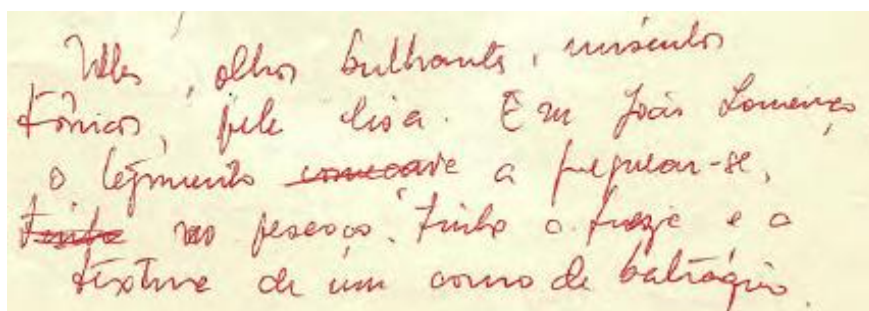 olhos brilhantes, músculos
tónicos, pele lisa. Em João Lourenço
o tegumento começava a preguear-se,
tinha no pescoço. Tinha a e a
textura de um couro de batráquio.